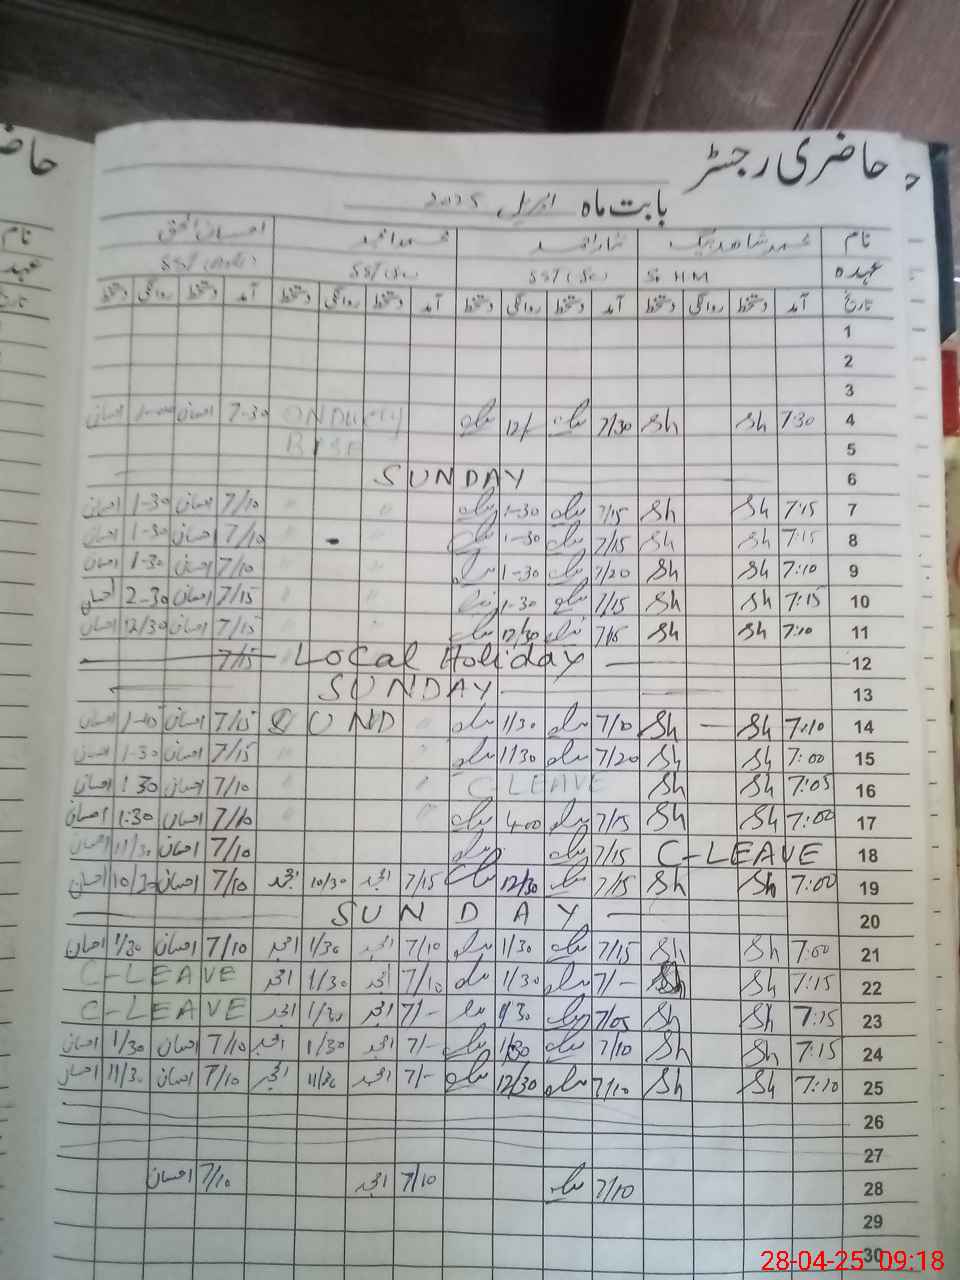 حاضری رجسٹر
بابت ماہ اپریل 2025
نام محمد شاہد بیگ نثار احمد محمد امجد احسان الحق
عہدہ S. HM SST (Sc) SST (Sc) SST
تاریخ آمد دستخط روانگی دستخط آمد دستخط روانگی دستخط آمد دستخط روانگی دستخط آمد دستخط روانگی دستخط
1
2
3
4 7:30 Sh Sh 7/30 12/ ON DUTY 7-30 احسان احسان
5 BISE
6 SUNDAY
7 7:15 Sh Sh 7/15 1-30 " " 7/10 احسان 1-30 احسان
8 7:15 Sh Sh 7/15 1-30 7/10 احسان 1-30 احسان
9 7:10 Sh Sh 7/20 1-30 " " 7/10 احسان 1-30 احسان
10 7:15 Sh Sh 7/15 1-30 " " 7/15 احسان 2-30 احسان
11 7:10 Sh Sh 7/15 12/30 " " 7/15 احسان 12/30 احسان
12 Local Holiday 7/15
13 SUNDAY
14 7:10 Sh — Sh 7/10 1/30 " OND 7/15 احسان احسان
15 7:00 Sh Sh 7/20 1/30 " " 7/15 احسان 1-30 احسان
16 7:05 Sh Sh C-LEAVE " " 7/10 احسان 1:30 احسان
17 7:00 Sh Sh 7/15 4:00 " " 7/10 احسان 1:30 احسان
18 C-LEAVE 7/15 7/10 احسان 11/30 احسان
19 7:00 Sh Sh 7/15 12/30 7/15 امجد 10/30 امجد 7/10 احسان 10/30 احسان
20 SUNDAY
21 7:00 Sh Sh 7/15 1/30 7/10 امجد 1/30 امجد 7/10 احسان 1/30 احسان
22 7:15 Sh 7/- 1/30 7/10 امجد 1/30 امجد C-LEAVE
23 7:15 Sh Sh 7/05 1/30 7/- امجد 1/30 امجد C-LEAVE
24 7:15 Sh Sh 7/10 1/30 7/- امجد 1/30 امجد 7/10 احسان 1/30 احسان
25 7:10 Sh Sh 7/10 12/30 7/- امجد 11/30 امجد 7/10 احسان 11/30 احسان
26
27
28 7/10 7/10 امجد 7/10 احسان
29
30
28-04-25 09:18